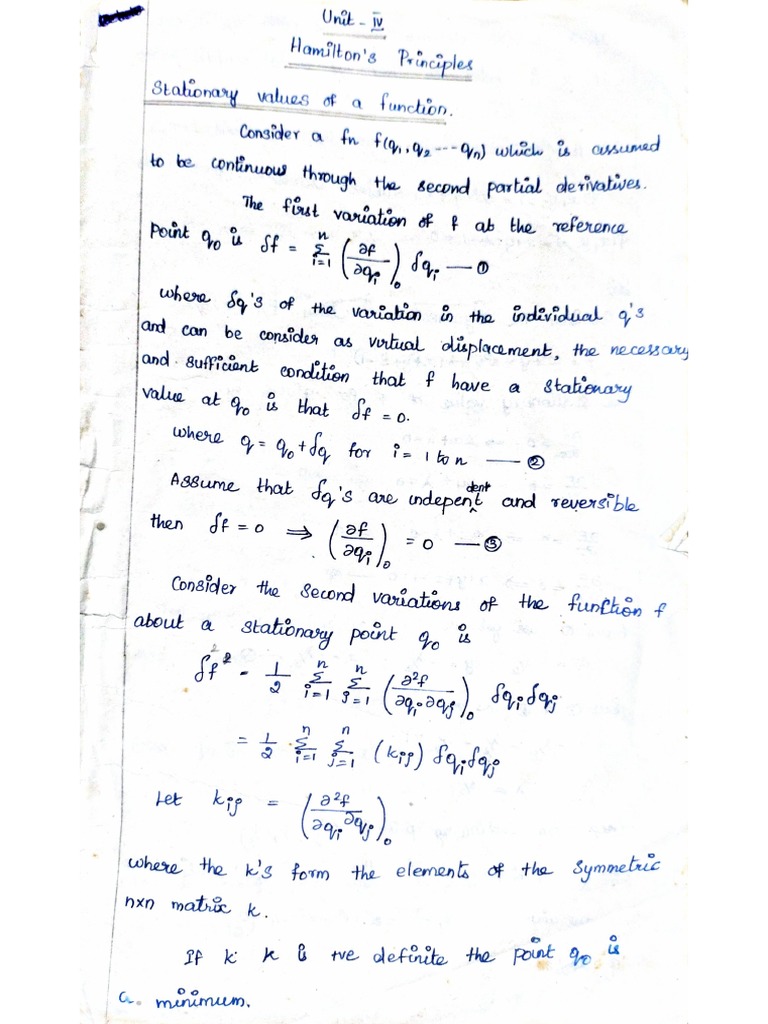 Unit - IV
Hamilton's Principles
Stationary values of a function.
Consider a fn f(q₁, q₂ --- qₙ) which is assumed
to be continuous through the second partial derivatives.
The first variation of f at the reference
point q₀ is δf = Σ_{i=1}^{n} (∂f/∂qᵢ)₀ δqᵢ — ①
where δq's of the variation in the individual q's
and can be consider as virtual displacement, the necessary
and sufficient condition that f have a stationary
value at q₀ is that δf = 0.
where q = q₀ + δq for i = 1 to n — ②
Assume that δq's are independent and reversible
then δf = 0 ⇒ (∂f/∂qᵢ)₀ = 0 — ③
Consider the second variations of the function f
about a stationary point q₀ is
δ²f² = 1/2 Σ_{i=1}^{n} Σ_{j=1}^{n} (∂²f/∂qᵢ∂qⱼ)₀ δqᵢ δqⱼ
= 1/2 Σ_{i=1}^{n} Σ_{j=1}^{n} (kᵢⱼ) δqᵢ δqⱼ
Let kᵢⱼ = (∂²f/∂qᵢ∂qⱼ)₀
where the k's form the elements of the symmetric
n×n matrix k.
If k k is +ve definite the point q₀ is
a. minimum.